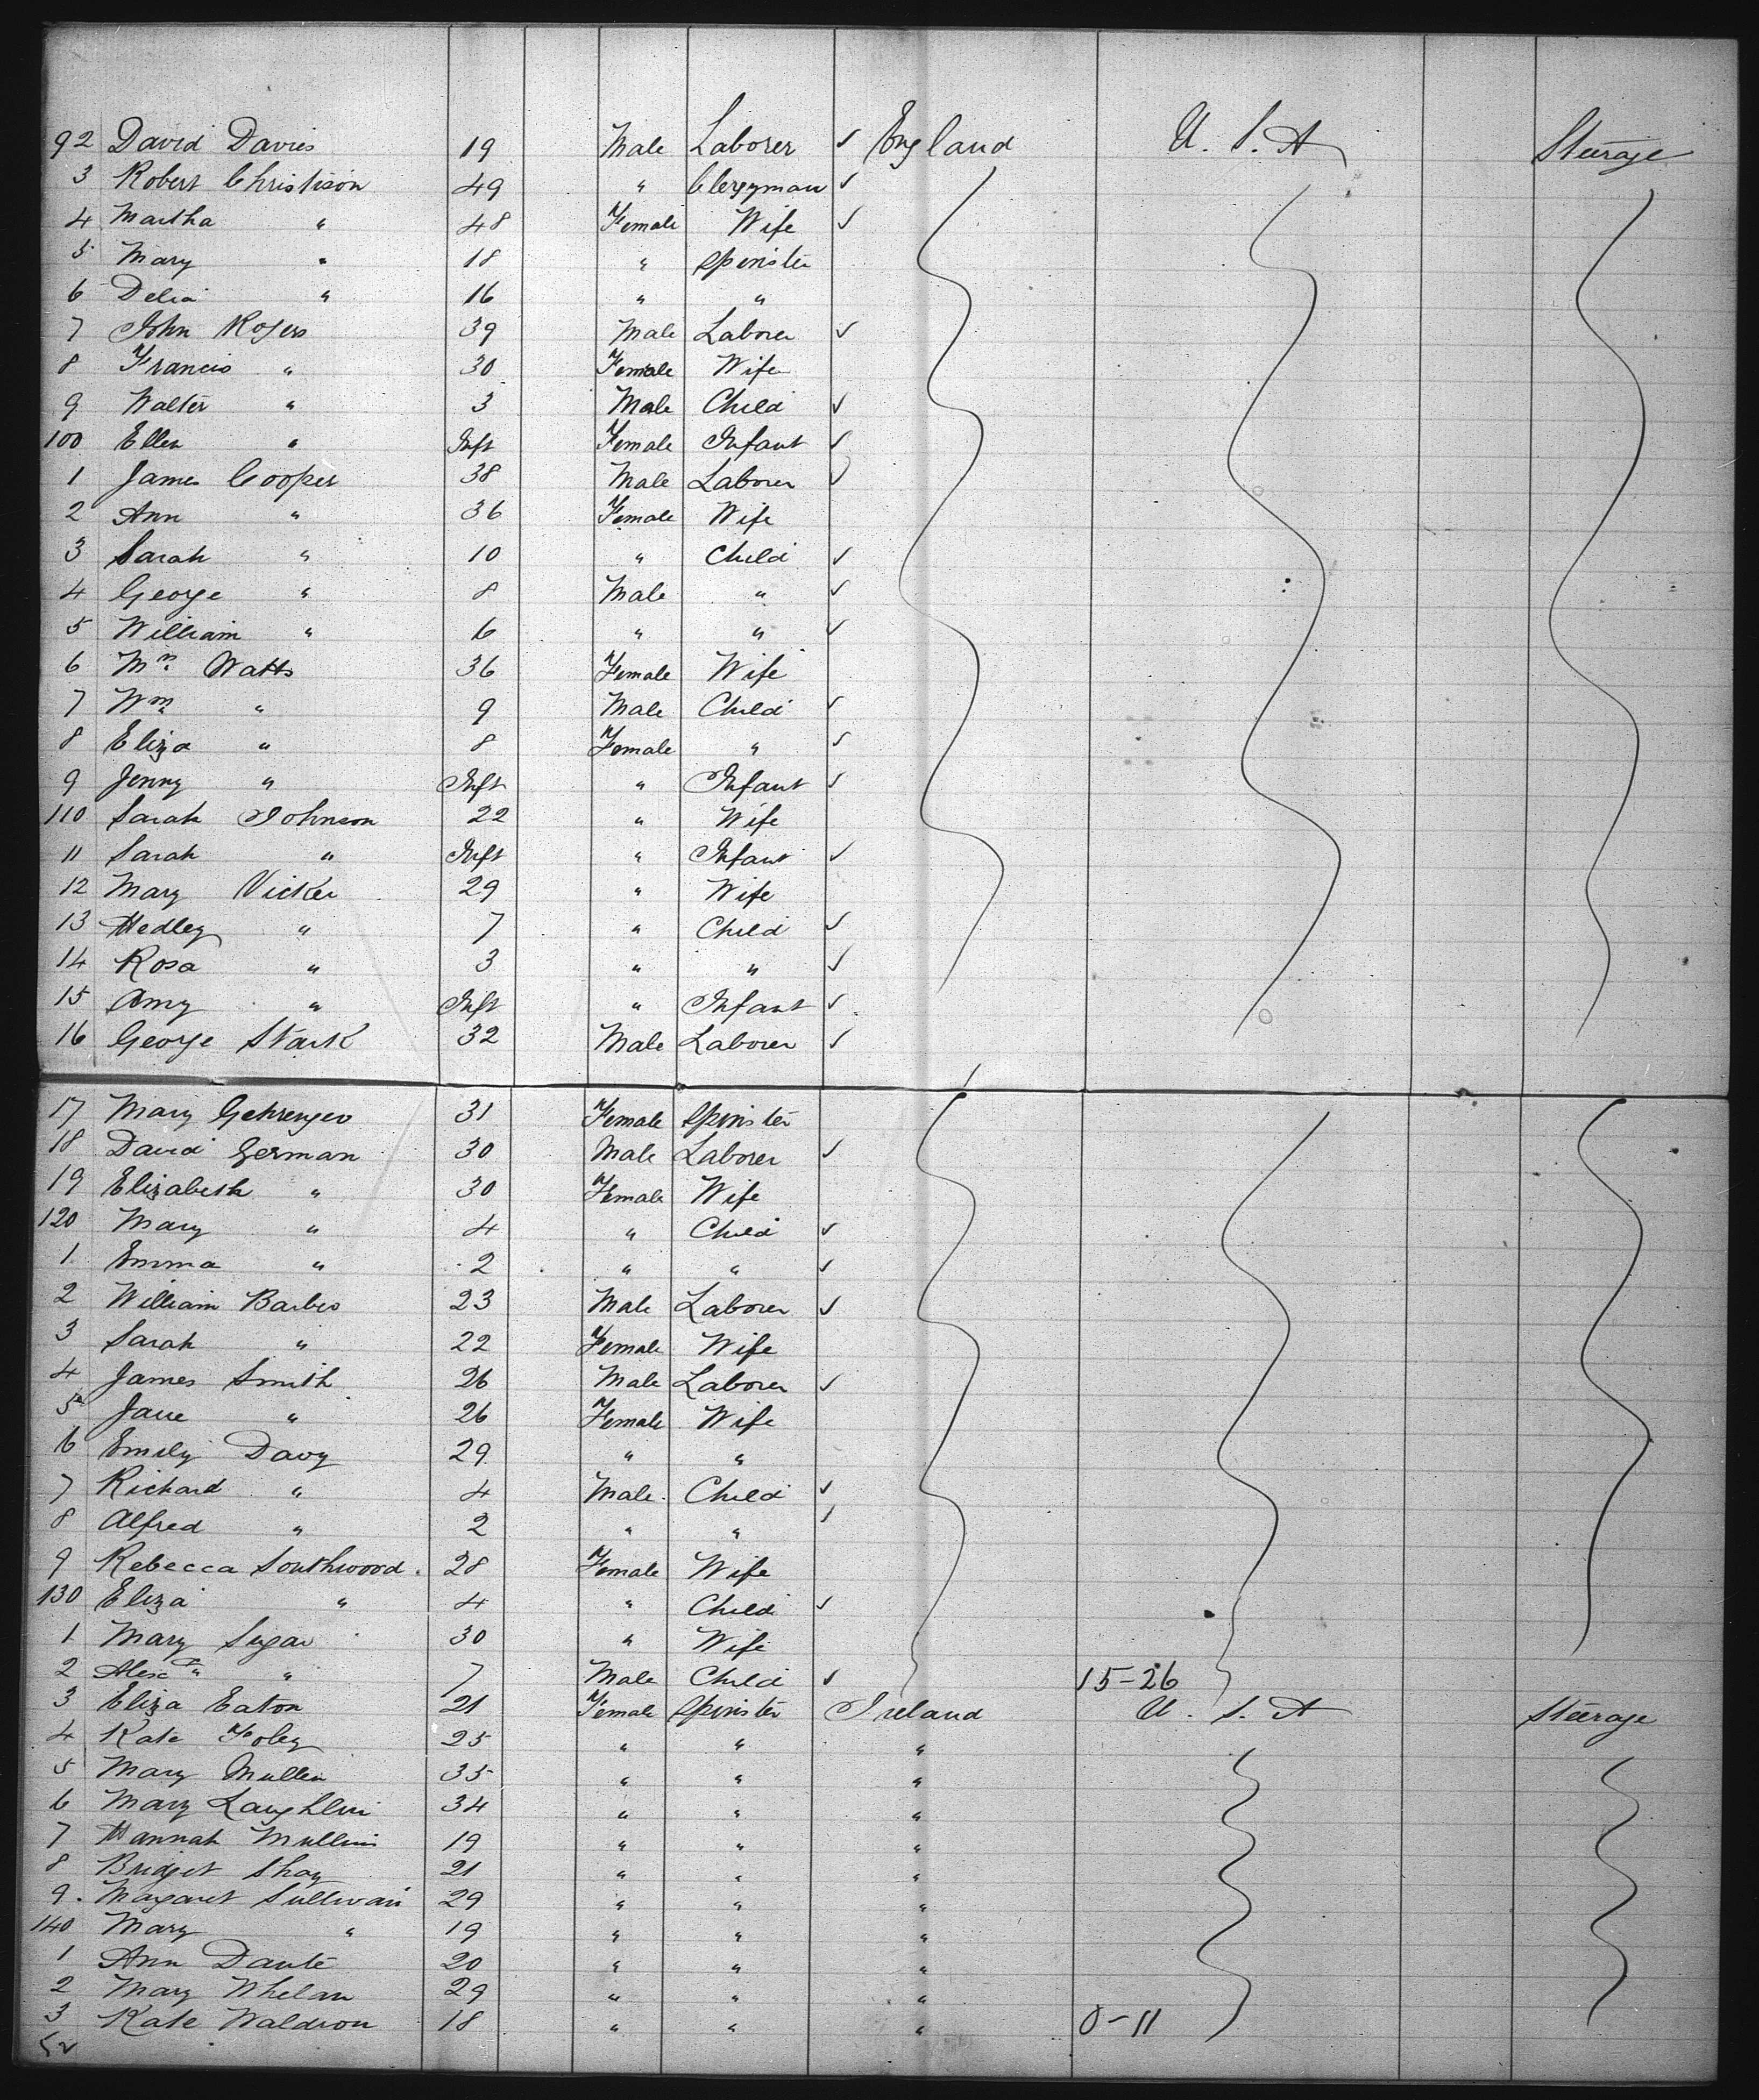 92 David Davies 19 Male Laborer ✓ England U. S. A Steerage
3 Robert Christison 49 " Clergyman ✓
4 Martha " 48 Female Wife ✓
5 Mary " 18 " Spinster
6 Delia " 16 " "
7 John Rogers 39 Male Laborer ✓
8 Francis " 30 Female Wife
9 Walter " 3 Male Child ✓
100 Ellen " Inft Female Infant ✓
1 James Cooper 38 Male Laborer ✓
2 Ann " 36 Female Wife
3 Sarah " 10 " Child ✓
4 George " 8 Male " ✓
5 William " 6 " " ✓
6 Mrs. Watts 36 Female Wife
7 Wm " 9 Male Child ✓
8 Eliza " 8 Female " ✓
9 Jenny " Inft " Infant ✓
110 Sarah Johnson 22 " Wife
11 Sarah " Inft " Infant ✓
12 Mary Vicker 29 " Wife
13 Hedley " 7 " Child ✓
14 Rosa " 3 " " ✓
15 Amy " Inft " Infant ✓
16 George Stark 32 Male Laborer ✓
17 Mary 31 Female Spinster
18 David German 30 Male Laborer ✓
19 Elizabeth " 30 Female Wife
120 Mary " 4 " Child ✓
1 Emma " 2 " " ✓
2 William 23 Male Laborer ✓
3 Sarah " 22 Female Wife
4 James Smith 26 Male Laborer ✓
5 Jane " 26 Female Wife
6 Emily Davy 29 " "
7 Richard " 4 Male Child ✓
8 Alfred " 2 " " ✓
9 Rebecca Southwood 28 Female Wife
130 Eliza " 4 " Child ✓
1 Mary 30 " Wife
2 Alexr " 7 Male Child ✓ 15-26
3 Eliza Eaton 21 Female Spinster Ireland U. S. A Steerage
4 Kate Foley 25 " " "
5 Mary Mullen 35 " " "
6 Mary Laughlin 34 " " "
7 Hannah Mullins 19 " " "
8 Bridget Shay 21 " " "
9 Margaret Sullivan 29 " " "
140 Mary " 19 " " "
1 Ann Dante 20 " " "
2 Mary Whelan 29 " " "
3 Kate Waldron 18 " " " 0-11